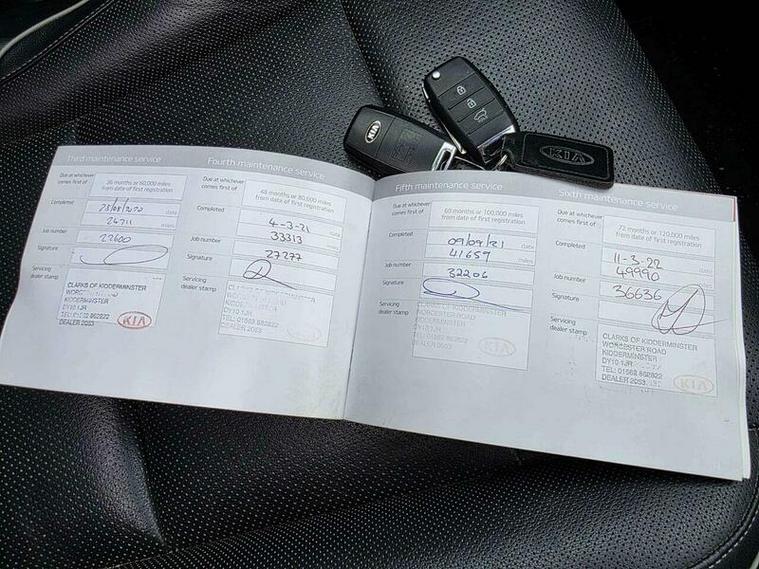 Third maintenance service
Due at whichever
comes first of
36 months or 60,000 miles
from date of first registration
Completed
date
26711
miles
Job number
22600
Signature
Servicing
dealer stamp
CLARKS OF KIDDERMINSTER
KIDDERMINSTER
DY10 1JR
DEALER 2053
KIA
Fourth maintenance service
Due at whichever
comes first of
48 months or 80,000 miles
from date of first registration
Completed
4-3-21
date
33313
miles
Job number
27277
Signature
Servicing
dealer stamp
CLARKS OF KIDDERMINSTER
WORCESTER ROAD
KIDDERMINSTER
DY10 1JR
TEL: 01562 862822
DEALER 2053
KIA
Fifth maintenance service
Due at whichever
comes first of
60 months or 100,000 miles
from date of first registration
Completed
09/09/21
date
41659
miles
Job number
32206
Signature
Servicing
dealer stamp
CLARKS OF KIDDERMINSTER
WORCESTER ROAD
KIDDERMINSTER
DY10 1JR
TEL: 01562 862822
DEALER 2053
KIA
Sixth maintenance service
Due at whichever
comes first of
72 months or 120,000 miles
from date of first registration
Completed
11-3-22
date
49990
miles
Job number
36636
Signature
Servicing
dealer stamp
CLARKS OF KIDDERMINSTER
WORCESTER ROAD
KIDDERMINSTER
DY10 1JR
TEL: 01562 862822
DEALER 2053
KIA
KIA
KIA